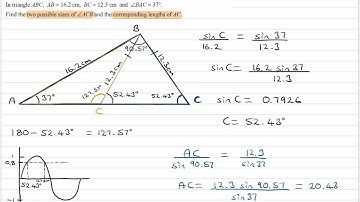 In triangle ABC, AB = 16.2 cm, BC = 12.3 cm and ∠BAC = 37°.
Find the two possible sizes of ∠ACB and the corresponding lengths of AC.
B
90.57°
16.2cm
12.3cm
12.3cm
A
37°
127.57°
52.43°
52.43°
C
C
180 - 52.43° = 127.57°
1
0.8
52.43°
-1
sin C = sin 37
16.2 12.3
sin C = 16.2 sin 37
12.3
sin C = 0.7926
C = 52.43°
AC = 12.3
sin 90.57 sin 37
AC = 12.3 sin 90.57 = 20.43
sin 37